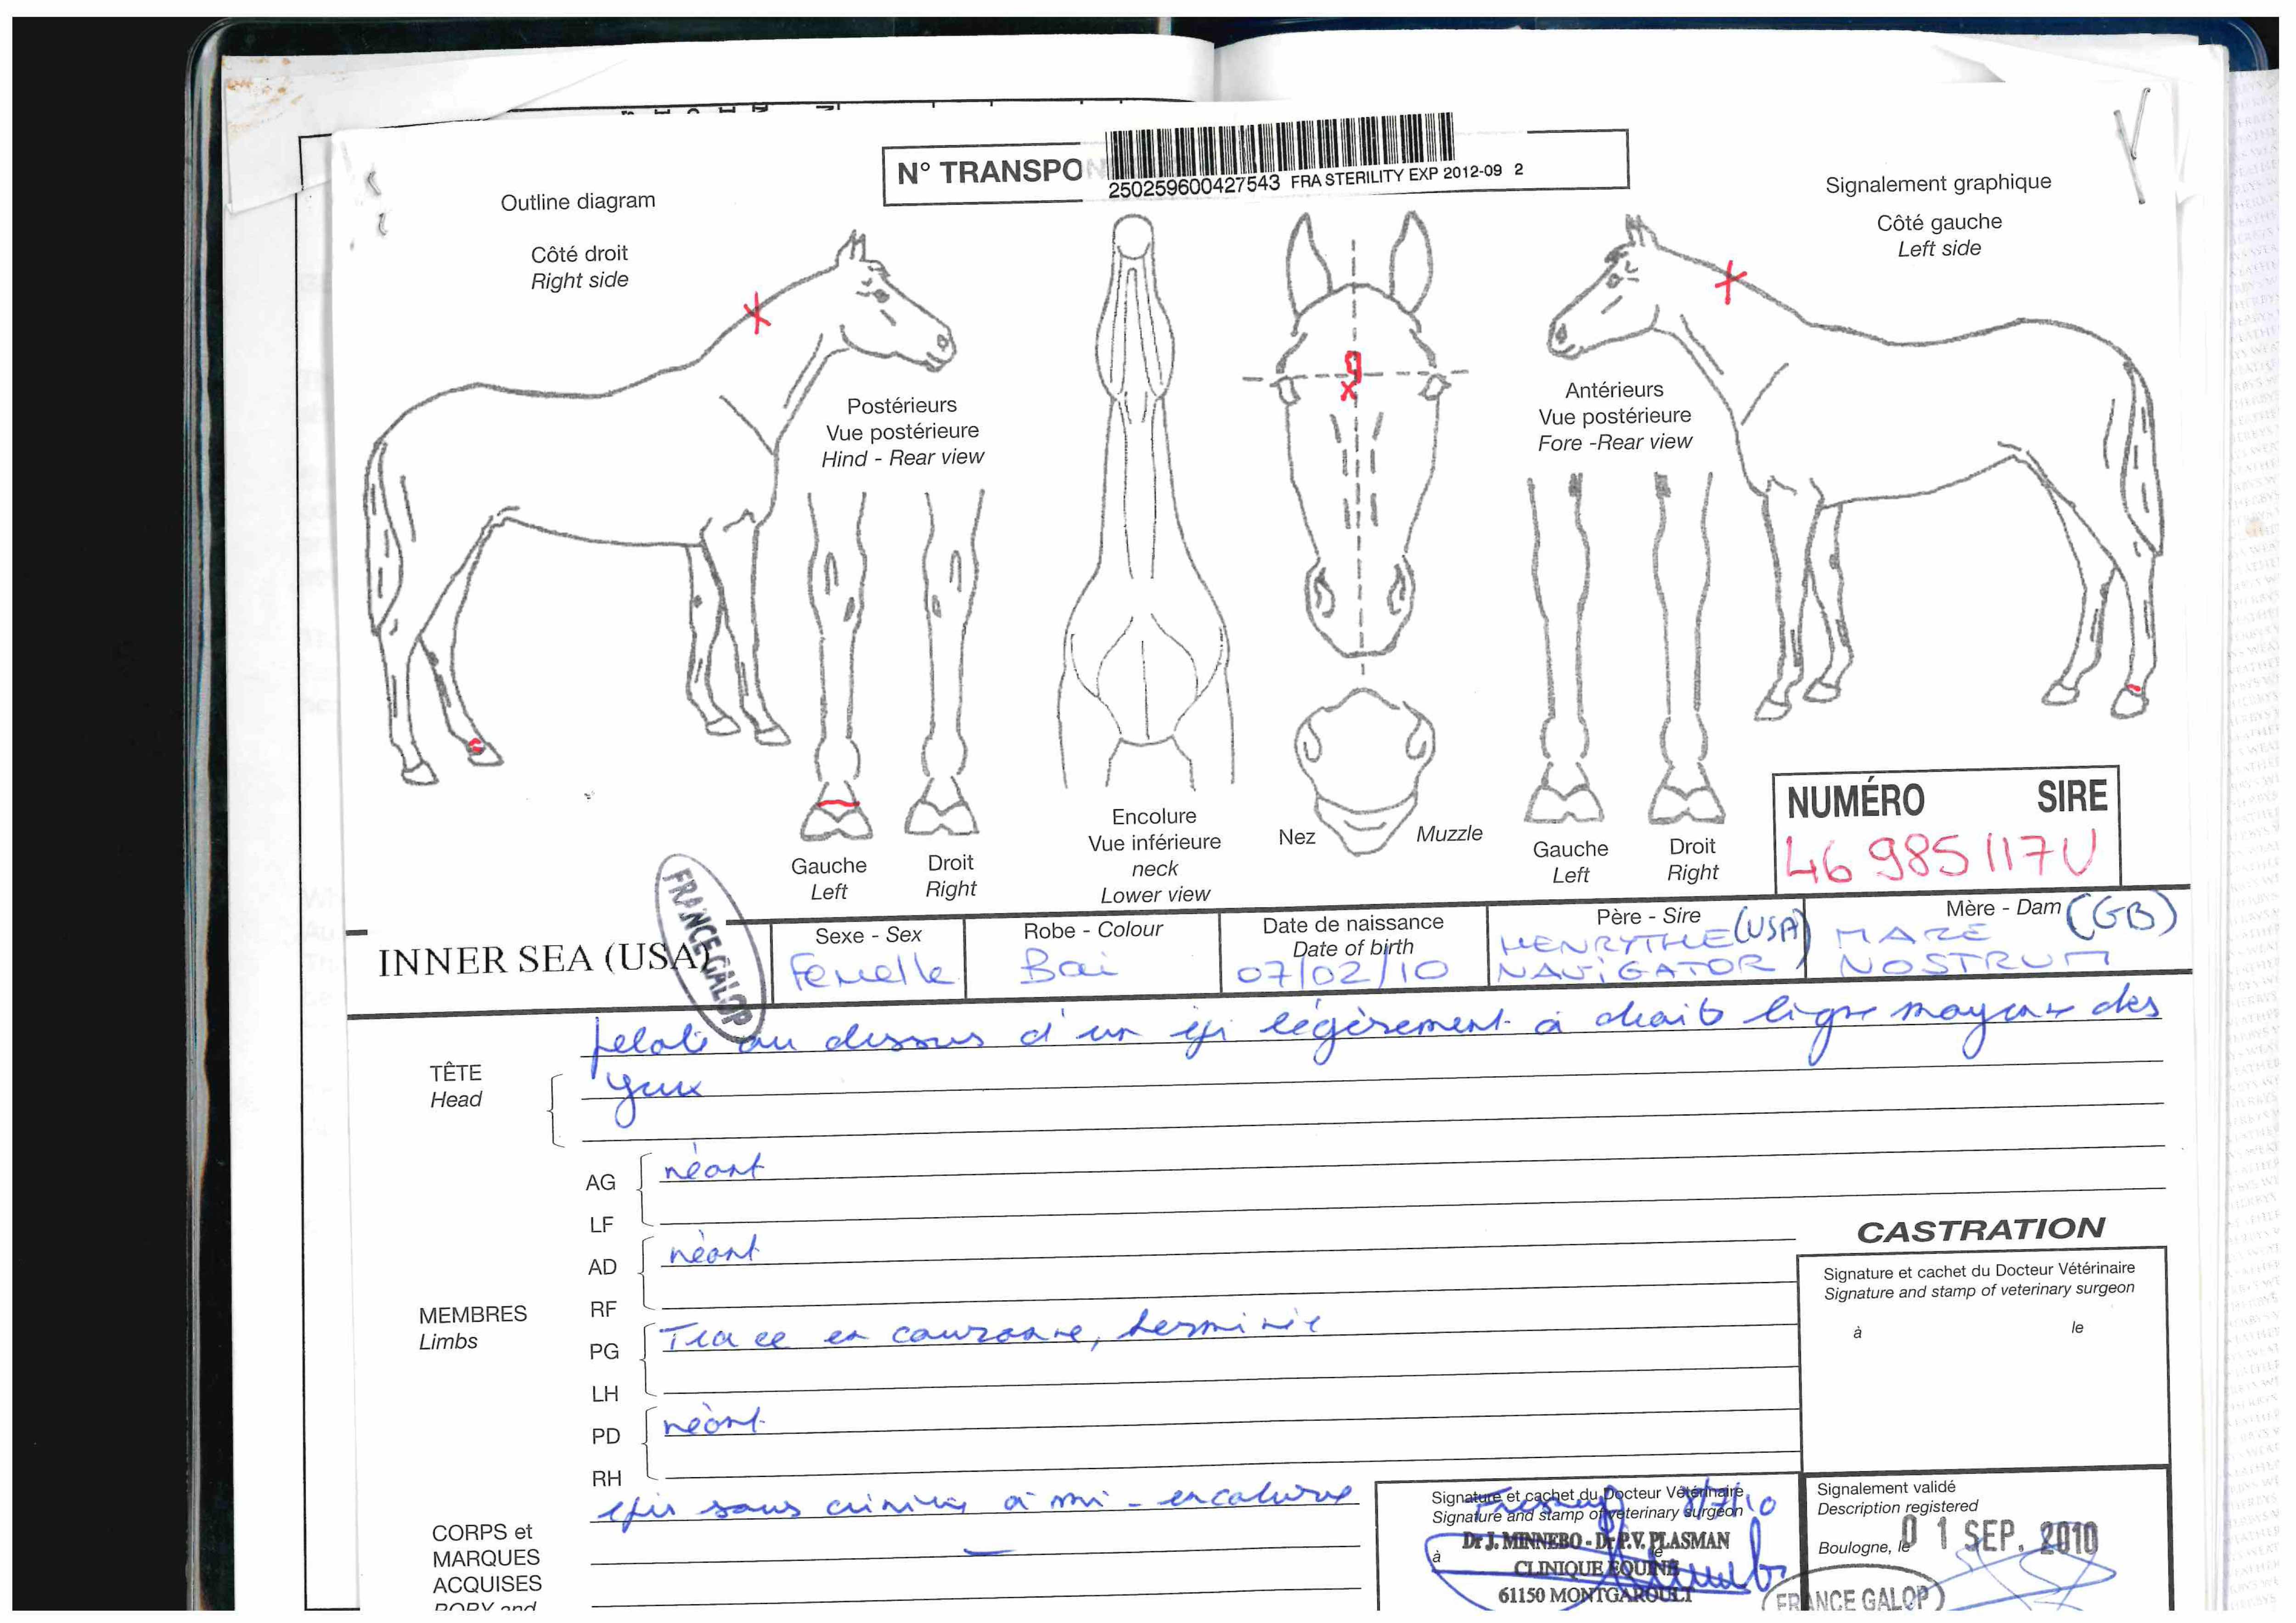 N° TRANSPO
250259600427543 FRA STERILITY EXP 2012-09 2
Outline diagram
Côté droit
Right side
Signalement graphique
Côté gauche
Left side
Postérieurs
Vue postérieure
Hind - Rear view
Antérieurs
Vue postérieure
Fore -Rear view
Gauche
Left
Droit
Right
Encolure
Vue inférieure
neck
Lower view
Nez
Muzzle
Gauche
Left
Droit
Right
NUMÉRO SIRE
46 985 117U
FRANCE GALOP
INNER SEA (USA)
Sexe - Sex
Femelle
Robe - Colour
Bai
Date de naissance
Date of birth
07/02/10
Père - Sire
HENRYTHE (USA)
NAVIGATOR
Mère - Dam (GB)
MARE
NOSTRUM
TÊTE
Head
pelote au dessus d'un épi légèrement à droite ligne moyenne des
yeux
MEMBRES
Limbs
AG
LF
néant
AD
RF
néant
PG
LH
Trace en couronne, herminée
PD
RH
néant
CORPS et
MARQUES
ACQUISES
BODY and
épis sous crinière à mi-encolure
CASTRATION
Signature et cachet du Docteur Vétérinaire
Signature and stamp of veterinary surgeon
à le
Signature et cachet du Docteur Vétérinaire
Signature and stamp of veterinary surgeon
8/7/10
à le
Dr J. MINNEBO - Dr P.V. PLASMAN
CLINIQUE EQUINE
61150 MONTGAROULT
Signalement validé
Description registered
Boulogne, le 01 SEP. 2010
FRANCE GALOP